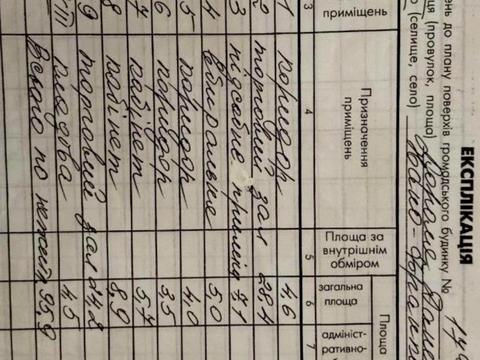 ЕКСПЛІКАЦІЯ
ень до плану поверхів громадського будинку №
ця (провулок, площа)
о (селище, село) Івано-Франк
приміщень
Призначення приміщень
Площа за внутрішнім обміром
Площа
загальна площа
адмініст-
ративно-
3 4 5 6 7
1 коридор 4.6
2 торговий зал 28.4
3 підсобне приміщ 7.1
4 вбиральня 5,0
5 коридор 4.0
6 коридор 3,5
7 кабінет 5,7
8 кабінет 8,9
9 торговий зал 24.2
VIII кладова 4.5
Всього по нежитл 95,9